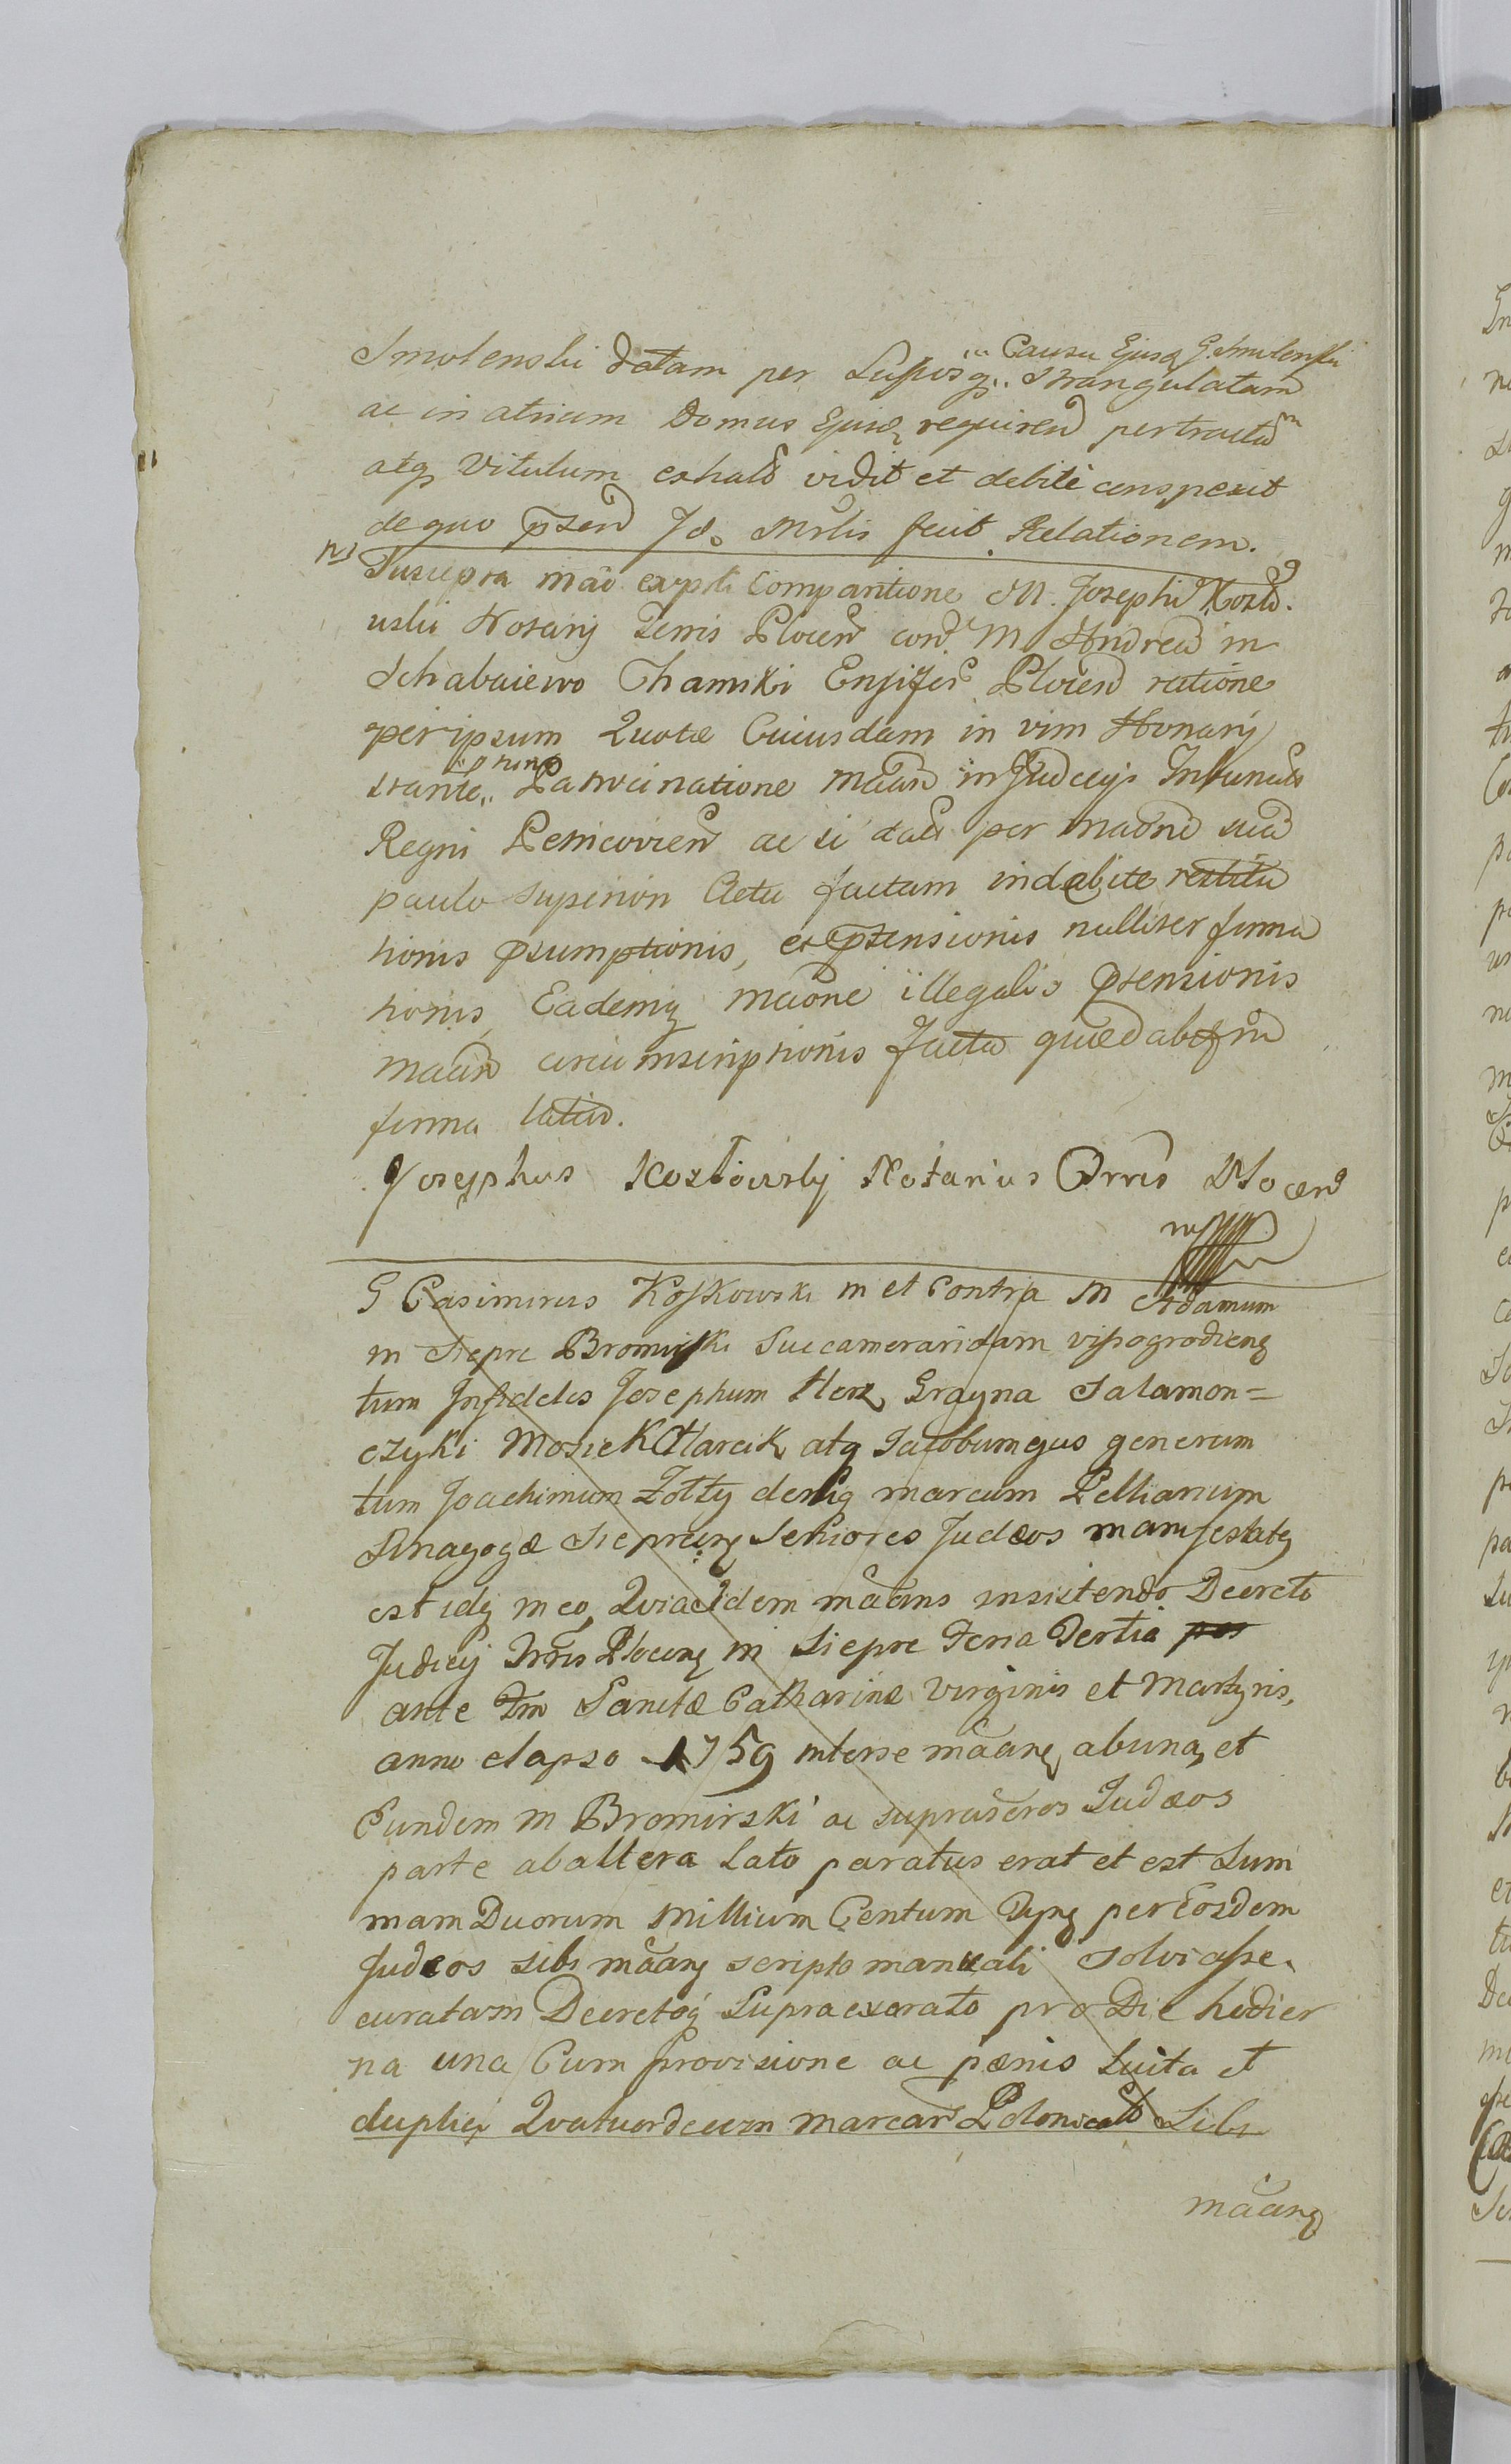 Smolenski datam per Lupos q. .. in Causa Ejusq G. Smolenski .. strangulatam
ac in atrium Domus Ejusq requiren pertracta
atq Vitulum exhalt vidit et debite conspexit
de quo pszen Jd. Mrlis fecit Relationem.
Ns Jusupra mao expti Comparitione M. Josephi Kozło-
wski Notarij Terris Plocen cor. M Andrea in
Schabaiewo Chamski Ensifer Plocen ratione
per ipsum Quotæ Cuiusdam in vim Honarij
stante .. Patrocinatione maan in Judicijs Tribunal
Regni Petricovien ac si dati per maone sua
paulo superiori Actu factam indebite restitu
tionis psumptionis, et ptensionis nulliter firma
tionis Eademq maone illegalis ptensionis
maan circumscriptionis facta quæd
firma latio.
Josephus Kozłowsky Notarius Trris Plocen
mp
G Casimirus Koskowski in et Contra M Adamum
in Siepre Bromirski Succameraridam vissogrodieng
tum Infideles Josephum Herz, Grayna Salamon=
czyki Mosiek Harcik atq Jacobum ejus generum
tum Joachimum Zołty deniq marcum Pellionum
Sinagogæ Sieprceng Seniores Judæos manifestatq
est idq in eo, Quia Idem maans insistendo Decreto
Judicij Trris Plocenq in Siepre Feria Tertia pos
ante Fm Sanctæ Catharinæ Virginis et Martyris,
anno elapso 1759 interse maanq abuna, et
Eundem M Bromirski ac supraseros Judæos
parte abaltera Lato paratus erat et est Sum
mam Duorum Millium Centum Tynq per Eosdem
Judæos sibi maanq scripto manuali solvi asse-
curatam Decretoq Supraexarato pro Die hodier
na una Cum provisione ac pænis Luita et
duplici Quatuordecem marcar Polonical Sibi
maanq